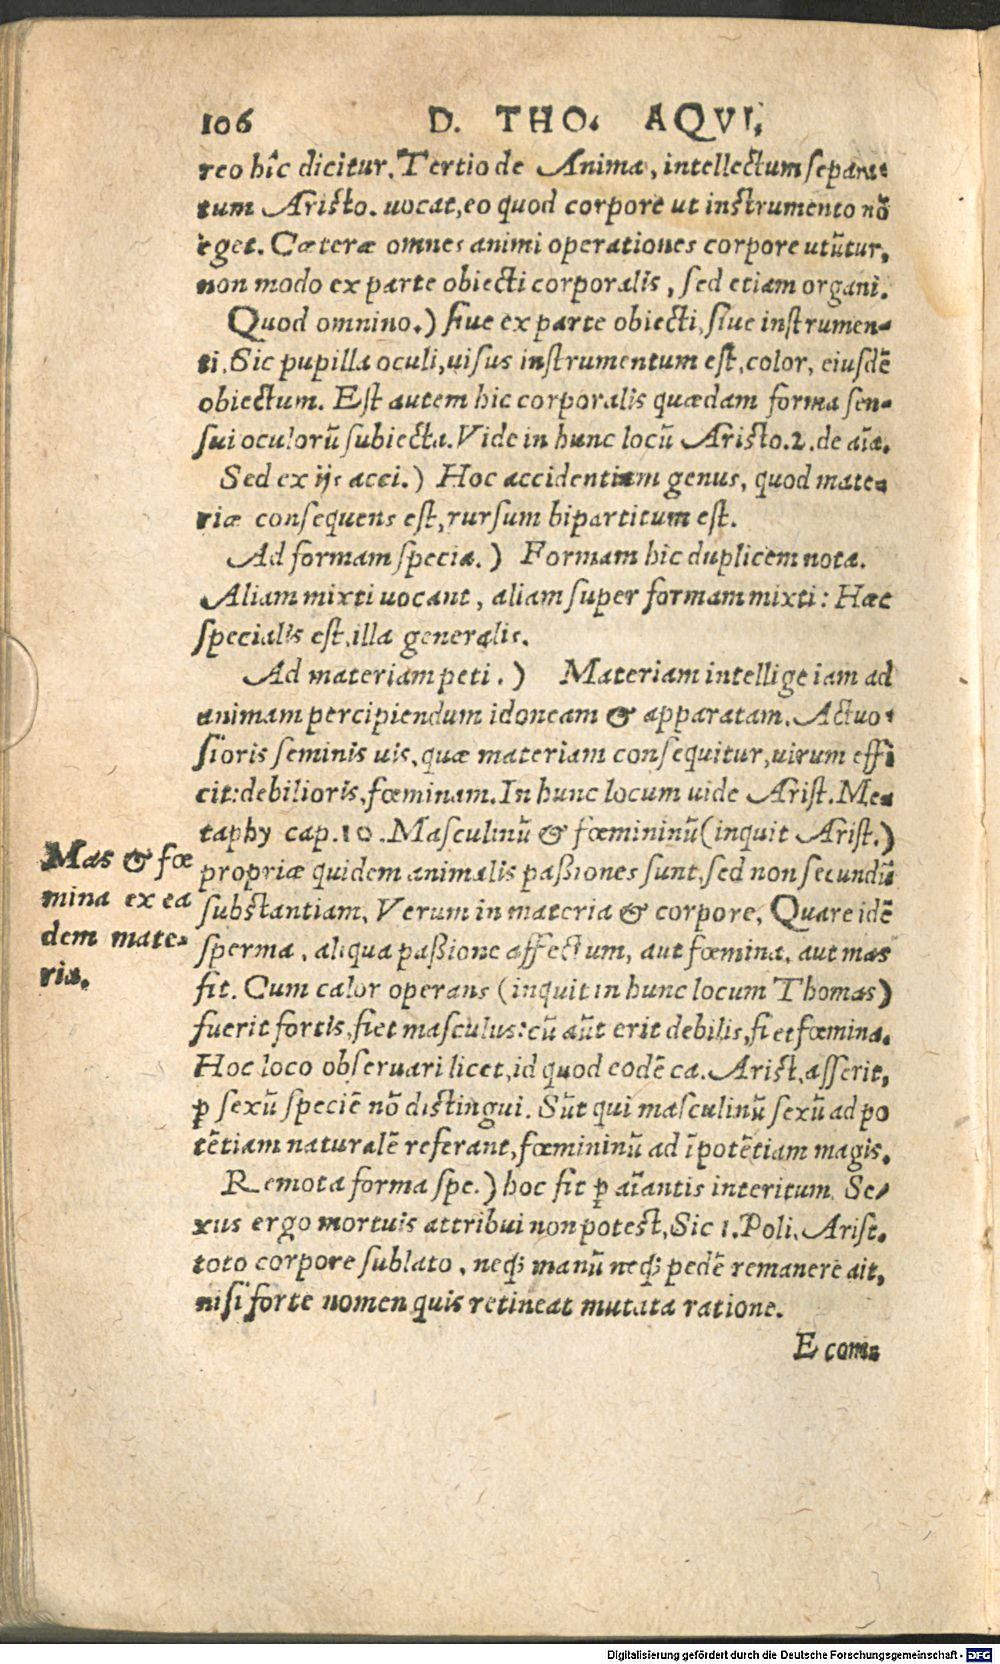 106 D. THO. AQVI.
reo hîc dicitur. Tertio de Anima, intellectum separa-
tum Aristo. uocat, eo quod corpore ut instrumento nō
eget. Cæteræ omnes animi operationes corpore utũtur,
non modo ex parte obiecti corporalis, sed etiam organi.
Quod omnino.) siue ex parte obiecti, siue instrumen-
ti. Sic pupilla oculi, uisus instrumentum est, color, eiusdē
obiectum. Est autem hic corporalis quædam forma sen-
sui oculorũ subiecta. Vide in hunc locũ Aristo. 2. de aīa.
Sed ex ijs acci.) Hoc accidentium genus, quod mate-
riæ consequens est, rursum bipartitum est.
Ad formam specia.) Formam hic duplicem nota.
Aliam mixti uocant, aliam super formam mixti: Hæc
specialis est, illa generalis.
Ad materiam peti.) Materiam intellige iam ad
animam percipiendum idoneam & apparatam. Actuo-
sioris seminis uis, quæ materiam consequitur, uirum effi
cit: debilioris, fœminam. In hunc locum uide Arist. Me-
taphy cap. 10. Masculinũ & fœmininũ (inquit Arist.)
propriæ quidem animalis paßiones sunt, sed non secundũ
substantiam, Verum in materia & corpore, Quare idē
sperma, aliqua paßione affectum, aut fœmina, aut mas
fit. Cum calor operans (inquit in hunc locum Thomas)
fuerit fortis, fiet masculus: cũ aũt erit debilis, fiet fœmina.
Hoc loco obseruari licet, id quod eodē ca. Arist. asserit,
ꝑ sexũ speciē nō distingui. Sũt qui masculinũ sexũ ad po
tētiam naturalē referant, fœmininũ ad īpotētiam magis.
Remota forma spe.) hoc fit ꝑ aīantis interitum. Se-
xus ergo mortuis attribui non potest, Sic 1. Poli. Arist.
toto corpore sublato, neqꝫ manũ neqꝫ pedē remanere ait,
nisi forte nomen quis retineat mutata ratione.
E com-
Mas & fœ
mina ex ea
dem mate-
ria.
Digitalisierung gefördert durch die Deutsche Forschungsgemeinschaft - DFG